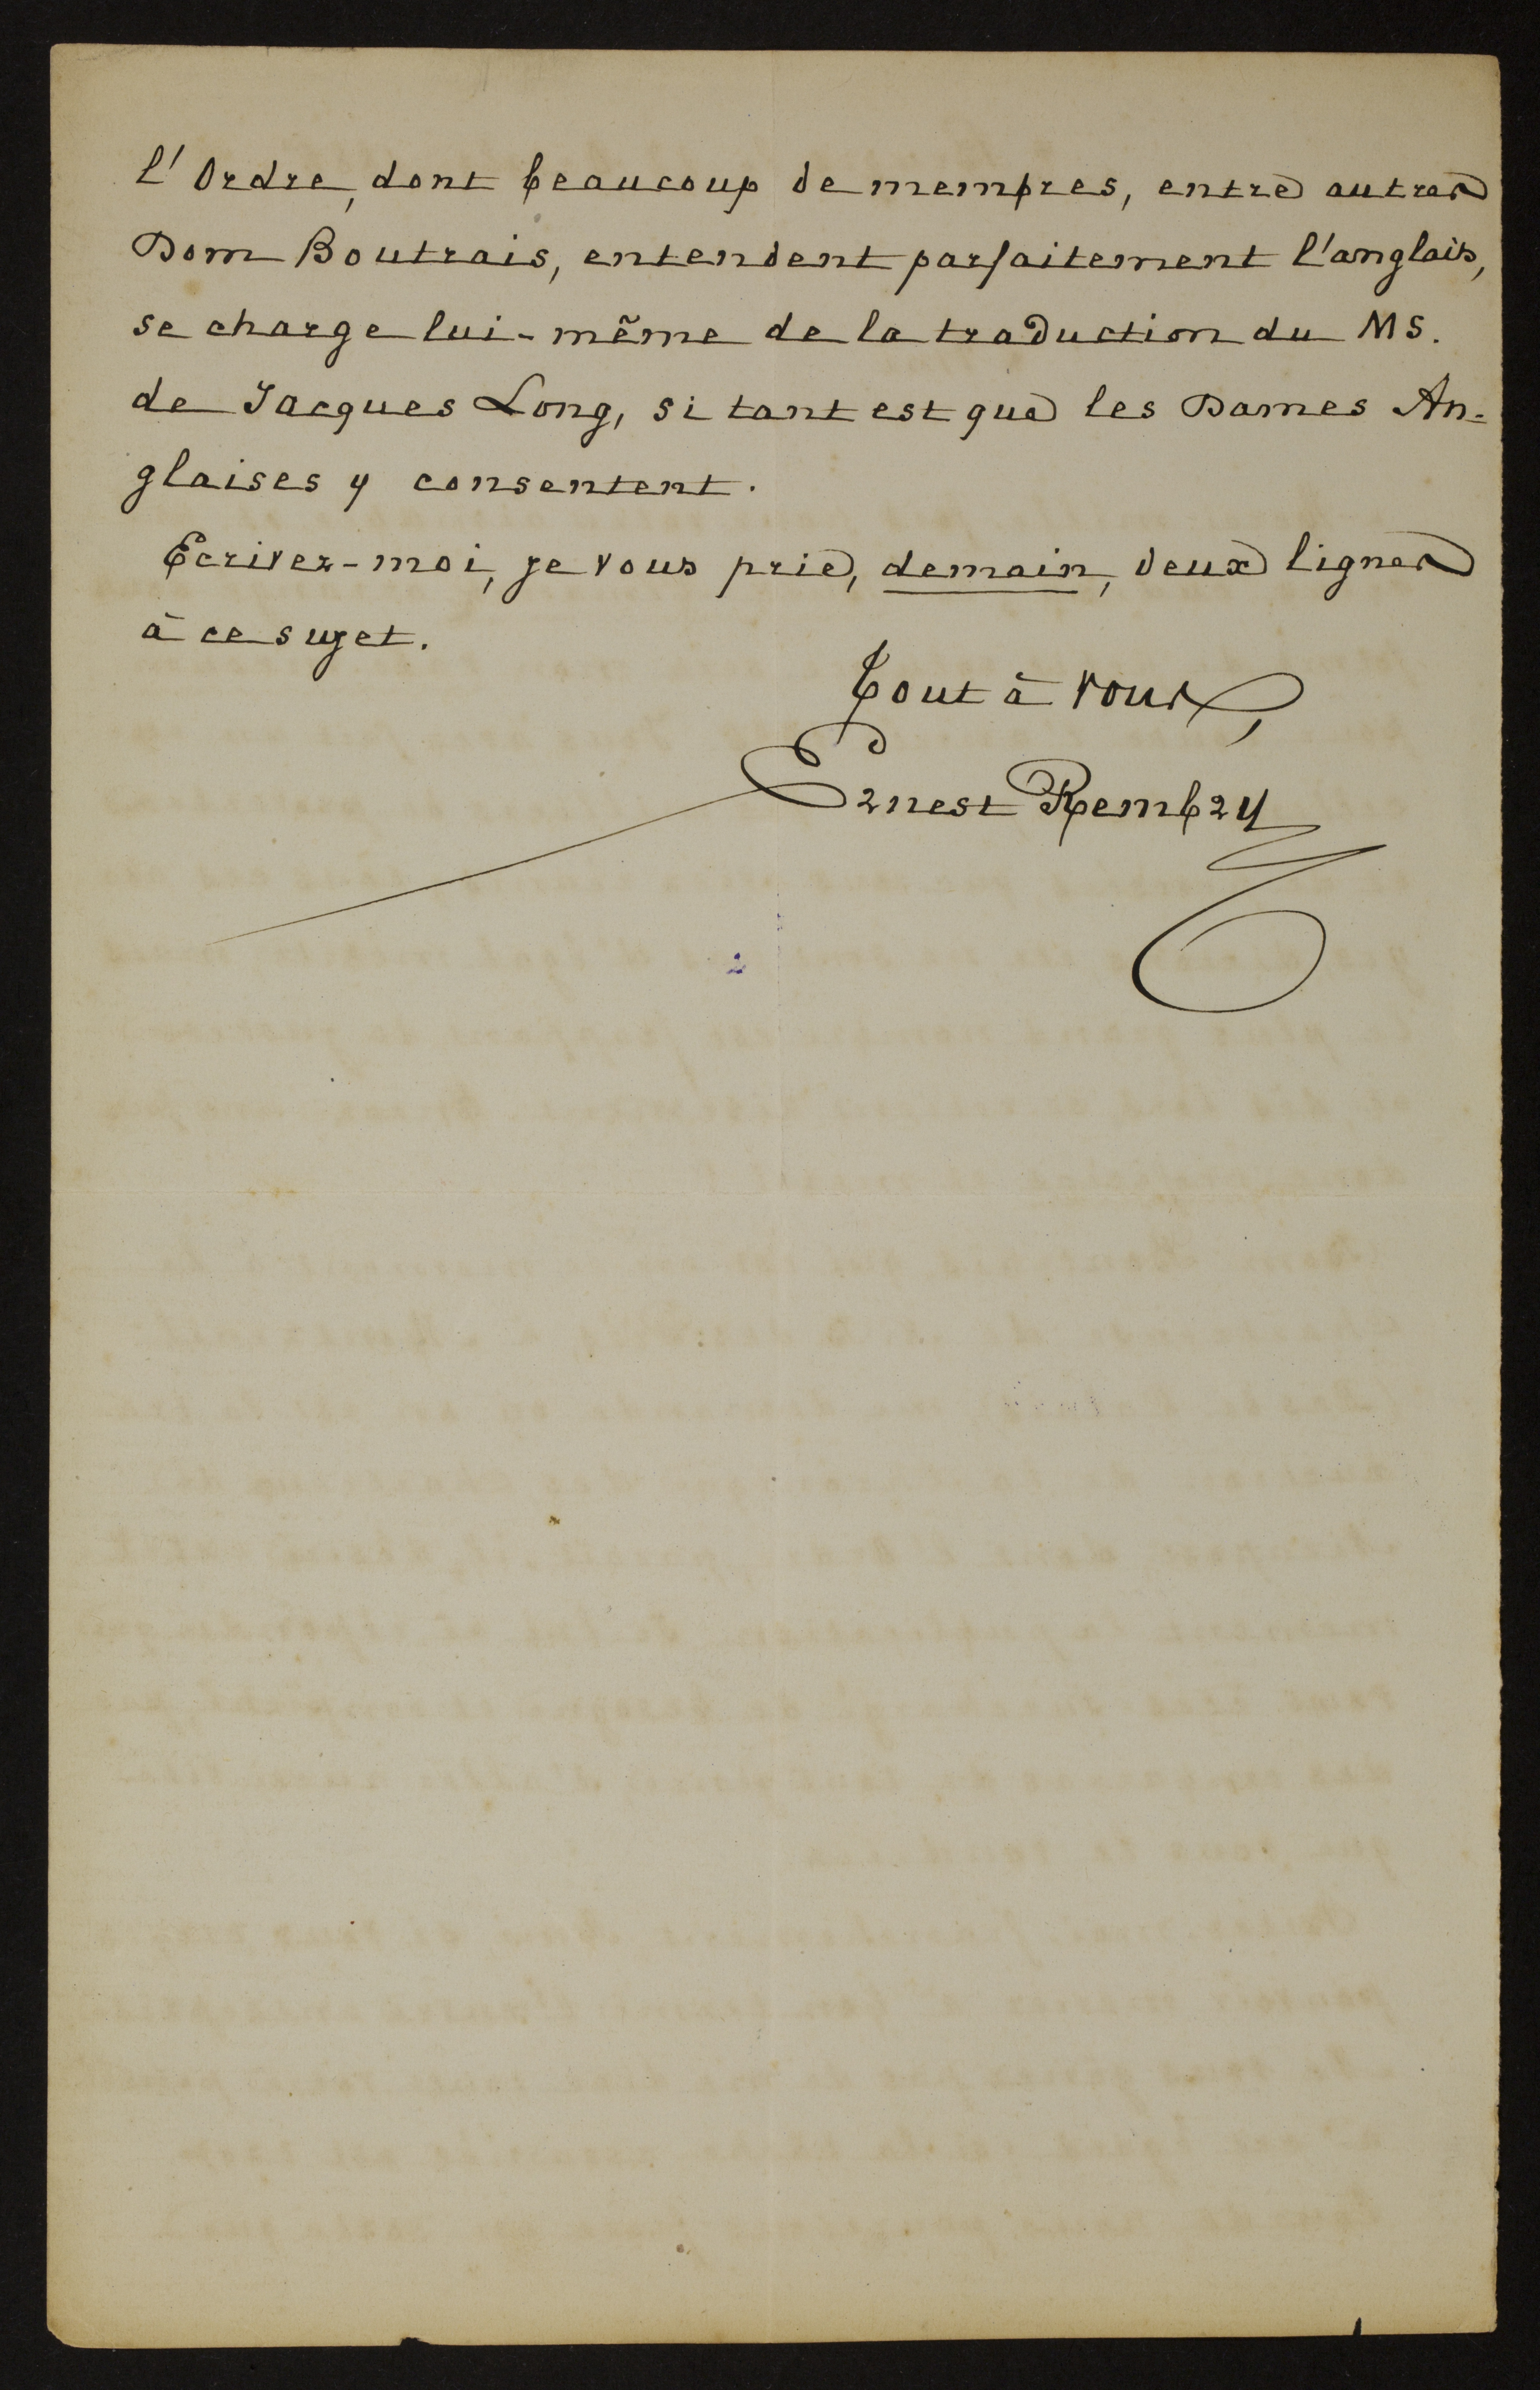 l'Ordre, dont beaucoup de membres, entre autres
Dom Boutrais, entendent parfaitement l'anglais,
se charge lui-même de la traduction du MS.
de Jacques Long, si tant est que les Dames An=
glaises y consentent.
Ecrivez-moi, je vous prie, demain, deux lignes
à ce sujet.
Tout à vous,
Ernest Rembry